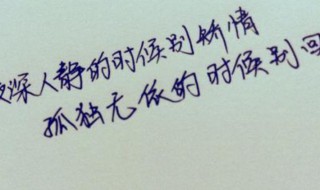 深人静的时候别矫情
孤独无依的时候别